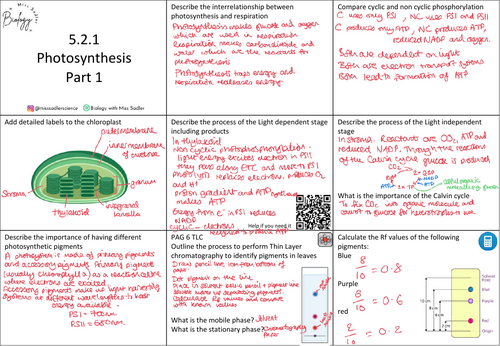 Miss Sadler
Biology
5.2.1
Photosynthesis
Part 1
@missadlerscience
Biology with Miss Sadler
Describe the interrelationship between
photosynthesis and respiration
Photosynthesis makes glucose and oxygen
which are used in respiration
Respiration makes carbon dioxide and
water which are the reactants for
photosynthesis
Photosynthesis traps energy and
respiration releases energy.
Compare cyclic and non cyclic phosphorylation
C uses only PSI, NC uses PSI and PSII
C produce only ATP, NC produces ATP,
reduced NADP and oxygen.
Both are dependent on light
Both are electron transport systems
Both lead to formation of ATP
Add detailed labels to the chloroplast
outer membrane
inner membrane
of envelope
granum
intergranal
lamella
thylakoid
stroma
Describe the process of the Light dependent stage
including products
In thylakoid
Non cyclic photophosphorylation
light energy excites electron in PSII
they pass along ETC and move to PSI
Photolysis releases electrons, makes O2
and H+
proton gradient and ATP synthase
makes ATP
Energy from e- in PSI reduces
NADP
cyclic - electrons
Help if you need it
Describe the process of the Light independent
stage
In stroma. Reactant are CO2, ATP and
reduced NADP. Through the reactions
of the Calvin cycle glucose is produced
CO2
RuBP
2 x GP
ATP
2 x TP
useful organic
molecules eg glucose
What is the importance of the Calvin cycle?
To fix CO2 into organic molecule and
convert to glucose for heterotrophs to use
Describe the importance of having different
photosynthetic pigments
A photosystem is made of primary pigments
and accessory pigments. Primary pigment
(usually chlorophyll a) as a reaction centre
where electrons are excited.
Accessory pigments make up light harvesting
systems at different wavelengths to boost
energy available.
PSI = 700nm
PSII = 680nm.
PAG 6 TLC
Outline the process to perform Thin Layer
chromatography to identify pigments in leaves
Draw pencil line 1cm from bottom of
paper
Dot pigment on the line
Place in solvent below pencil + pigment line
Solvent moves up separating pigments.
Calculate Rf values and compare
with known values.
What is the mobile phase? Solvent
What is the stationary phase? Chromatography
paper
Calculate the Rf values of the following
pigments:
Blue
8/10 = 0.8
Purple
6/10 = 0.6
red
2/10 = 0.2
Solvent
front
Blue
Purple
Red
Origin
10 cm
8 cm
6 cm
2 cm